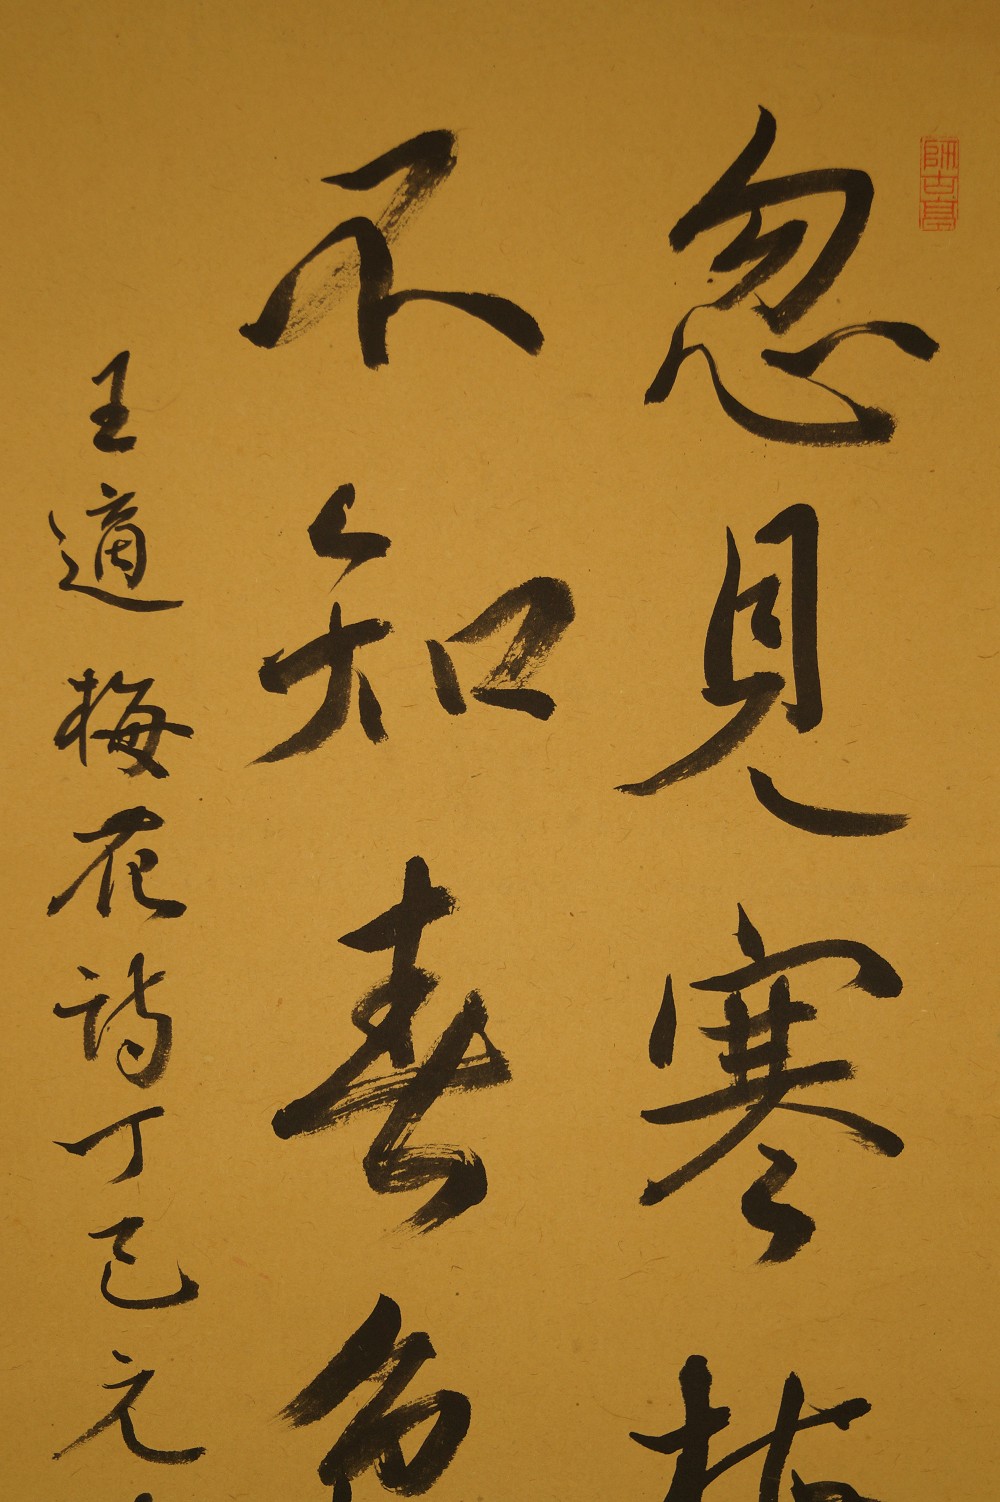 師古
忽見寒梅
不知春色
王適梅花詩丁巳元